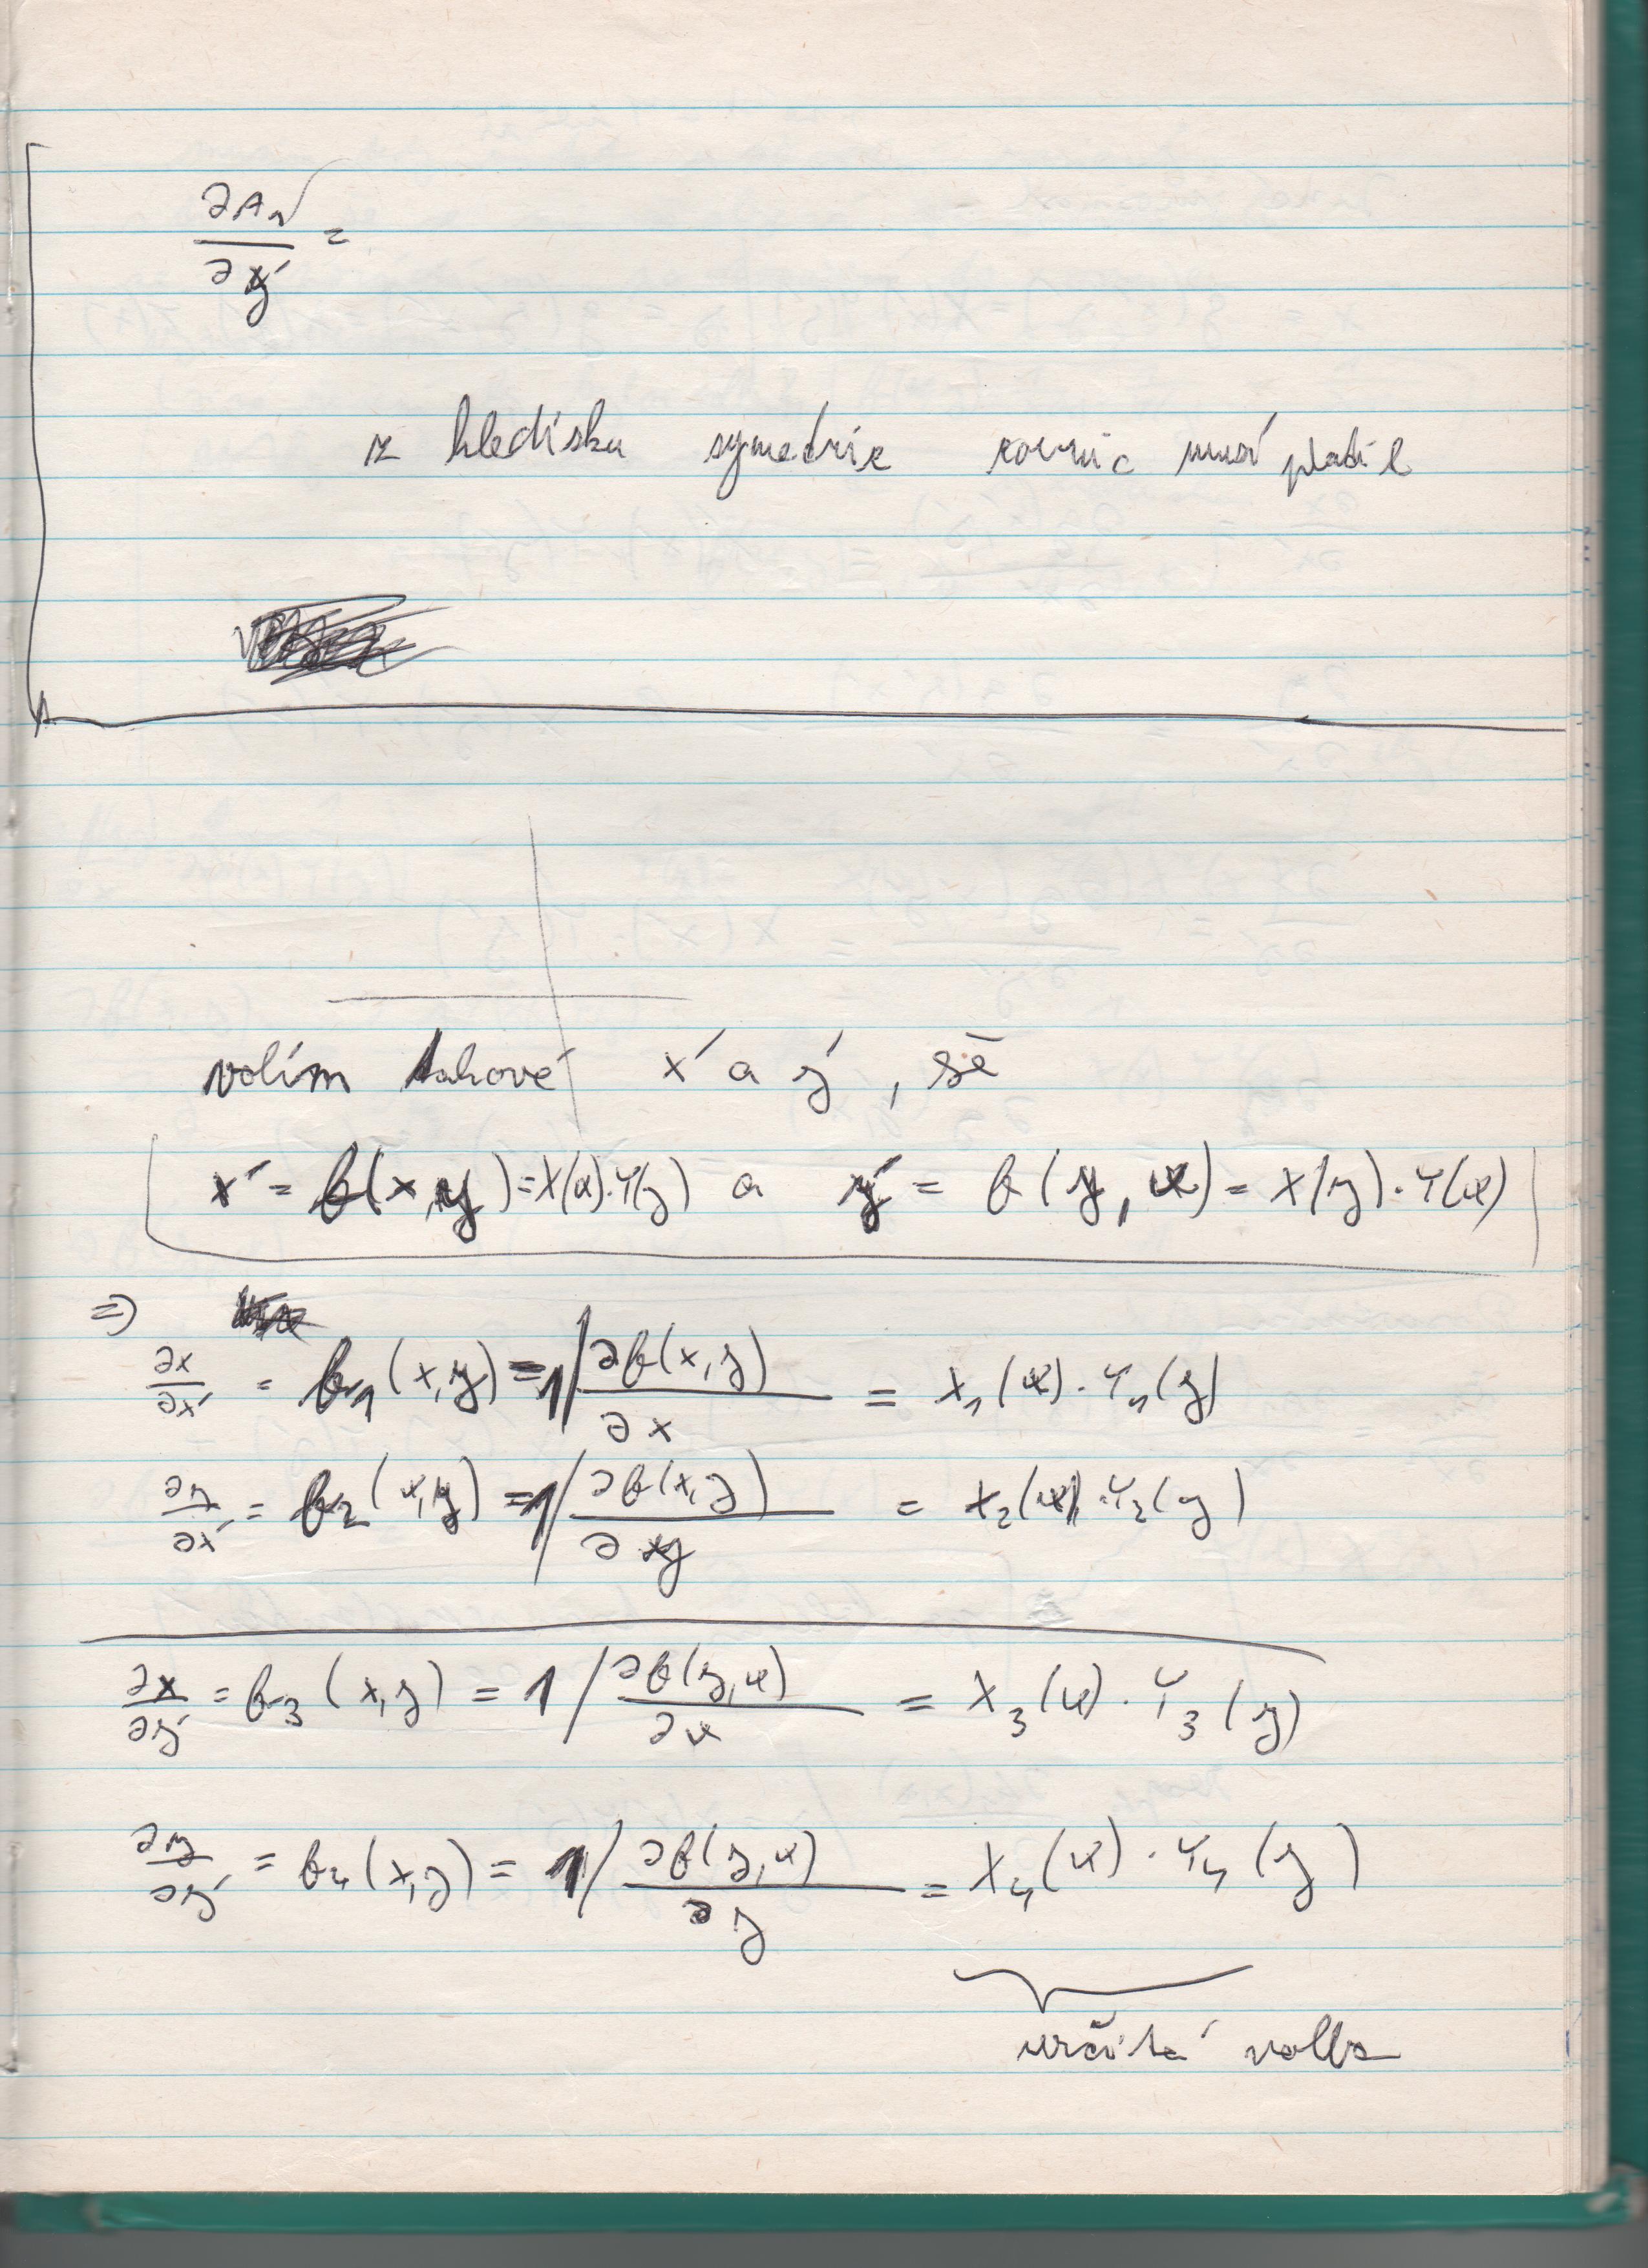 ∂A₁
∂y' =
z hlediska symetrie rovnic musí platit
volím takové x' a y', že
x' = f(x,y) = X(x)·Y(y) a y' = f(y,x) = X(y)·Y(x)
⇒
∂x/∂x' = f₁(x,y) = 1/ ∂f(x,y)/∂x = X₁(x)·Y₁(y)
∂y/∂x' = f₂(x,y) = 1/ ∂f(x,y)/∂y = X₂(x)·Y₂(y)
∂x/∂y' = f₃(x,y) = 1/ ∂f(y,x)/∂x = X₃(x)·Y₃(y)
∂y/∂y' = f₄(x,y) = 1/ ∂f(y,x)/∂y = X₄(x)·Y₄(y)
určitá volba